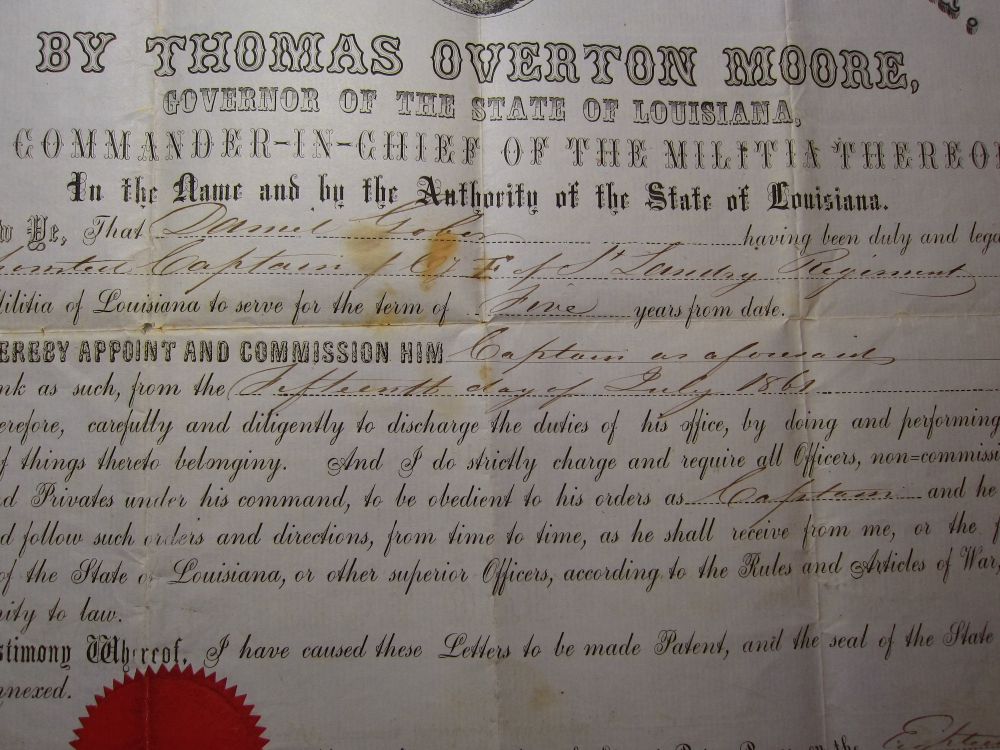 BY THOMAS OVERTON MOORE,
GOVERNOR OF THE STATE OF LOUISIANA,
COMMANDER-IN-CHIEF OF THE MILITIA THEREO
In the Name and by the Authority of the State of Louisiana.
w Ye, That Daniel Gober having been duly and lega
Captain of Co. F of St Landry Regiment
Militia of Louisiana to serve for the term of Five years from date.
EREBY APPOINT AND COMMISSION HIM Captain as aforesaid
nk as such, from the fifteenth day of July 1861
erefore, carefully and diligently to discharge the duties of his office, by doing and performing
f things thereto belonginy. And I do strictly charge and require all Officers, non=commissi
d Privates under his command, to be obedient to his orders as Captain and he
d follow such orders and directions, from time to time, as he shall receive from me, or the f
of the State of Louisiana, or other superior Officers, according to the Rules and Articles of War,
nity to law.
stimony Whereof, I have caused these Letters to be made Patent, and the seal of the State
nnexed.